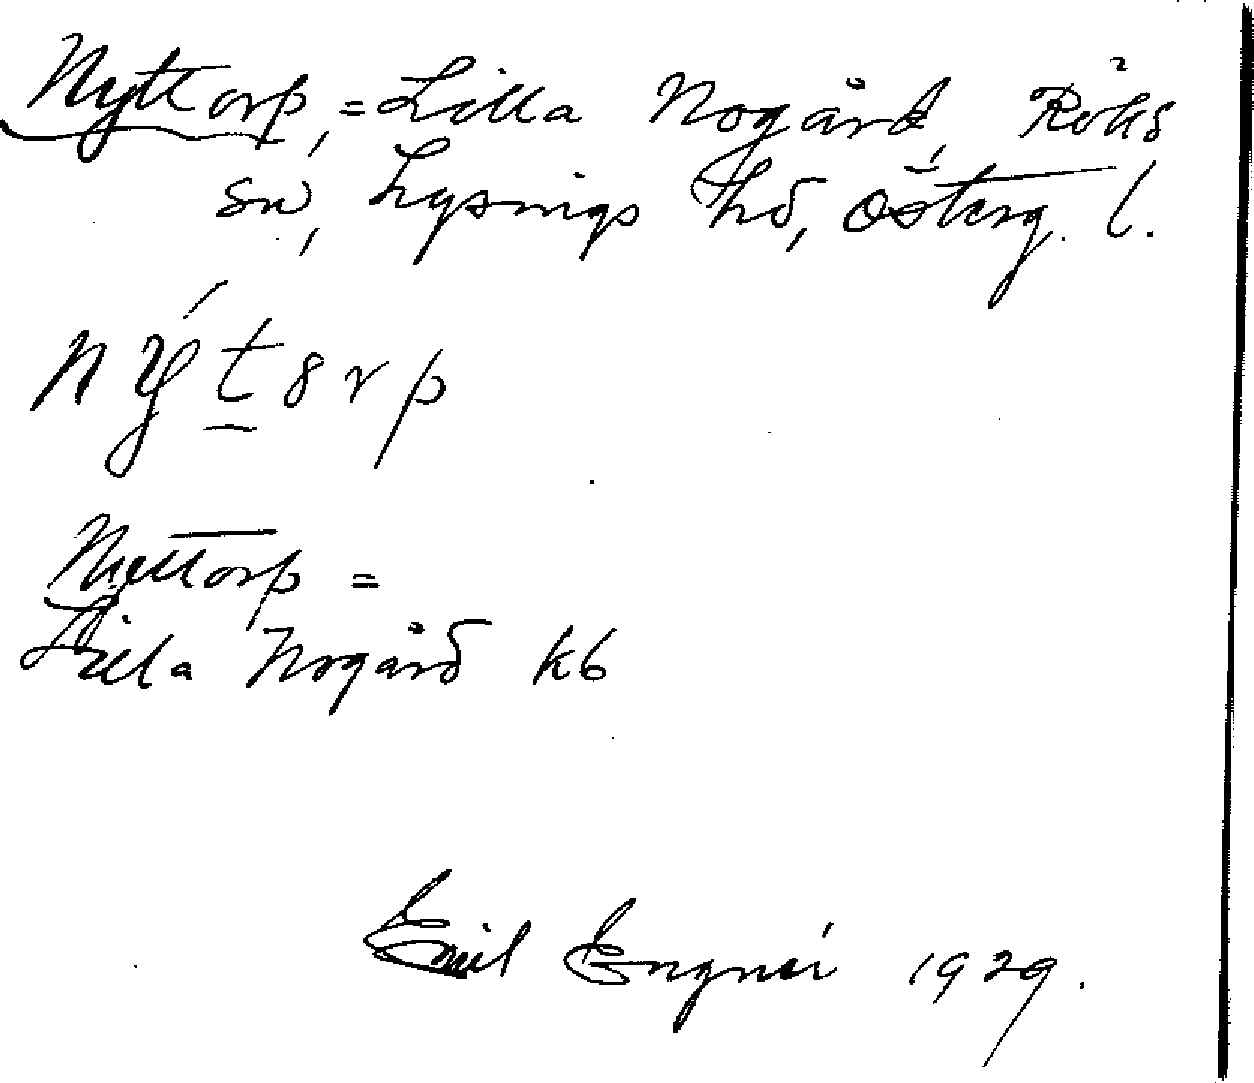 Nyttorp, = Lilla Nogård, Röks
sn, Lysings hd, Österg. l.
nýt8rp
Nyttorp =
Lilla Nogård kb
Emil Engnér 1929.